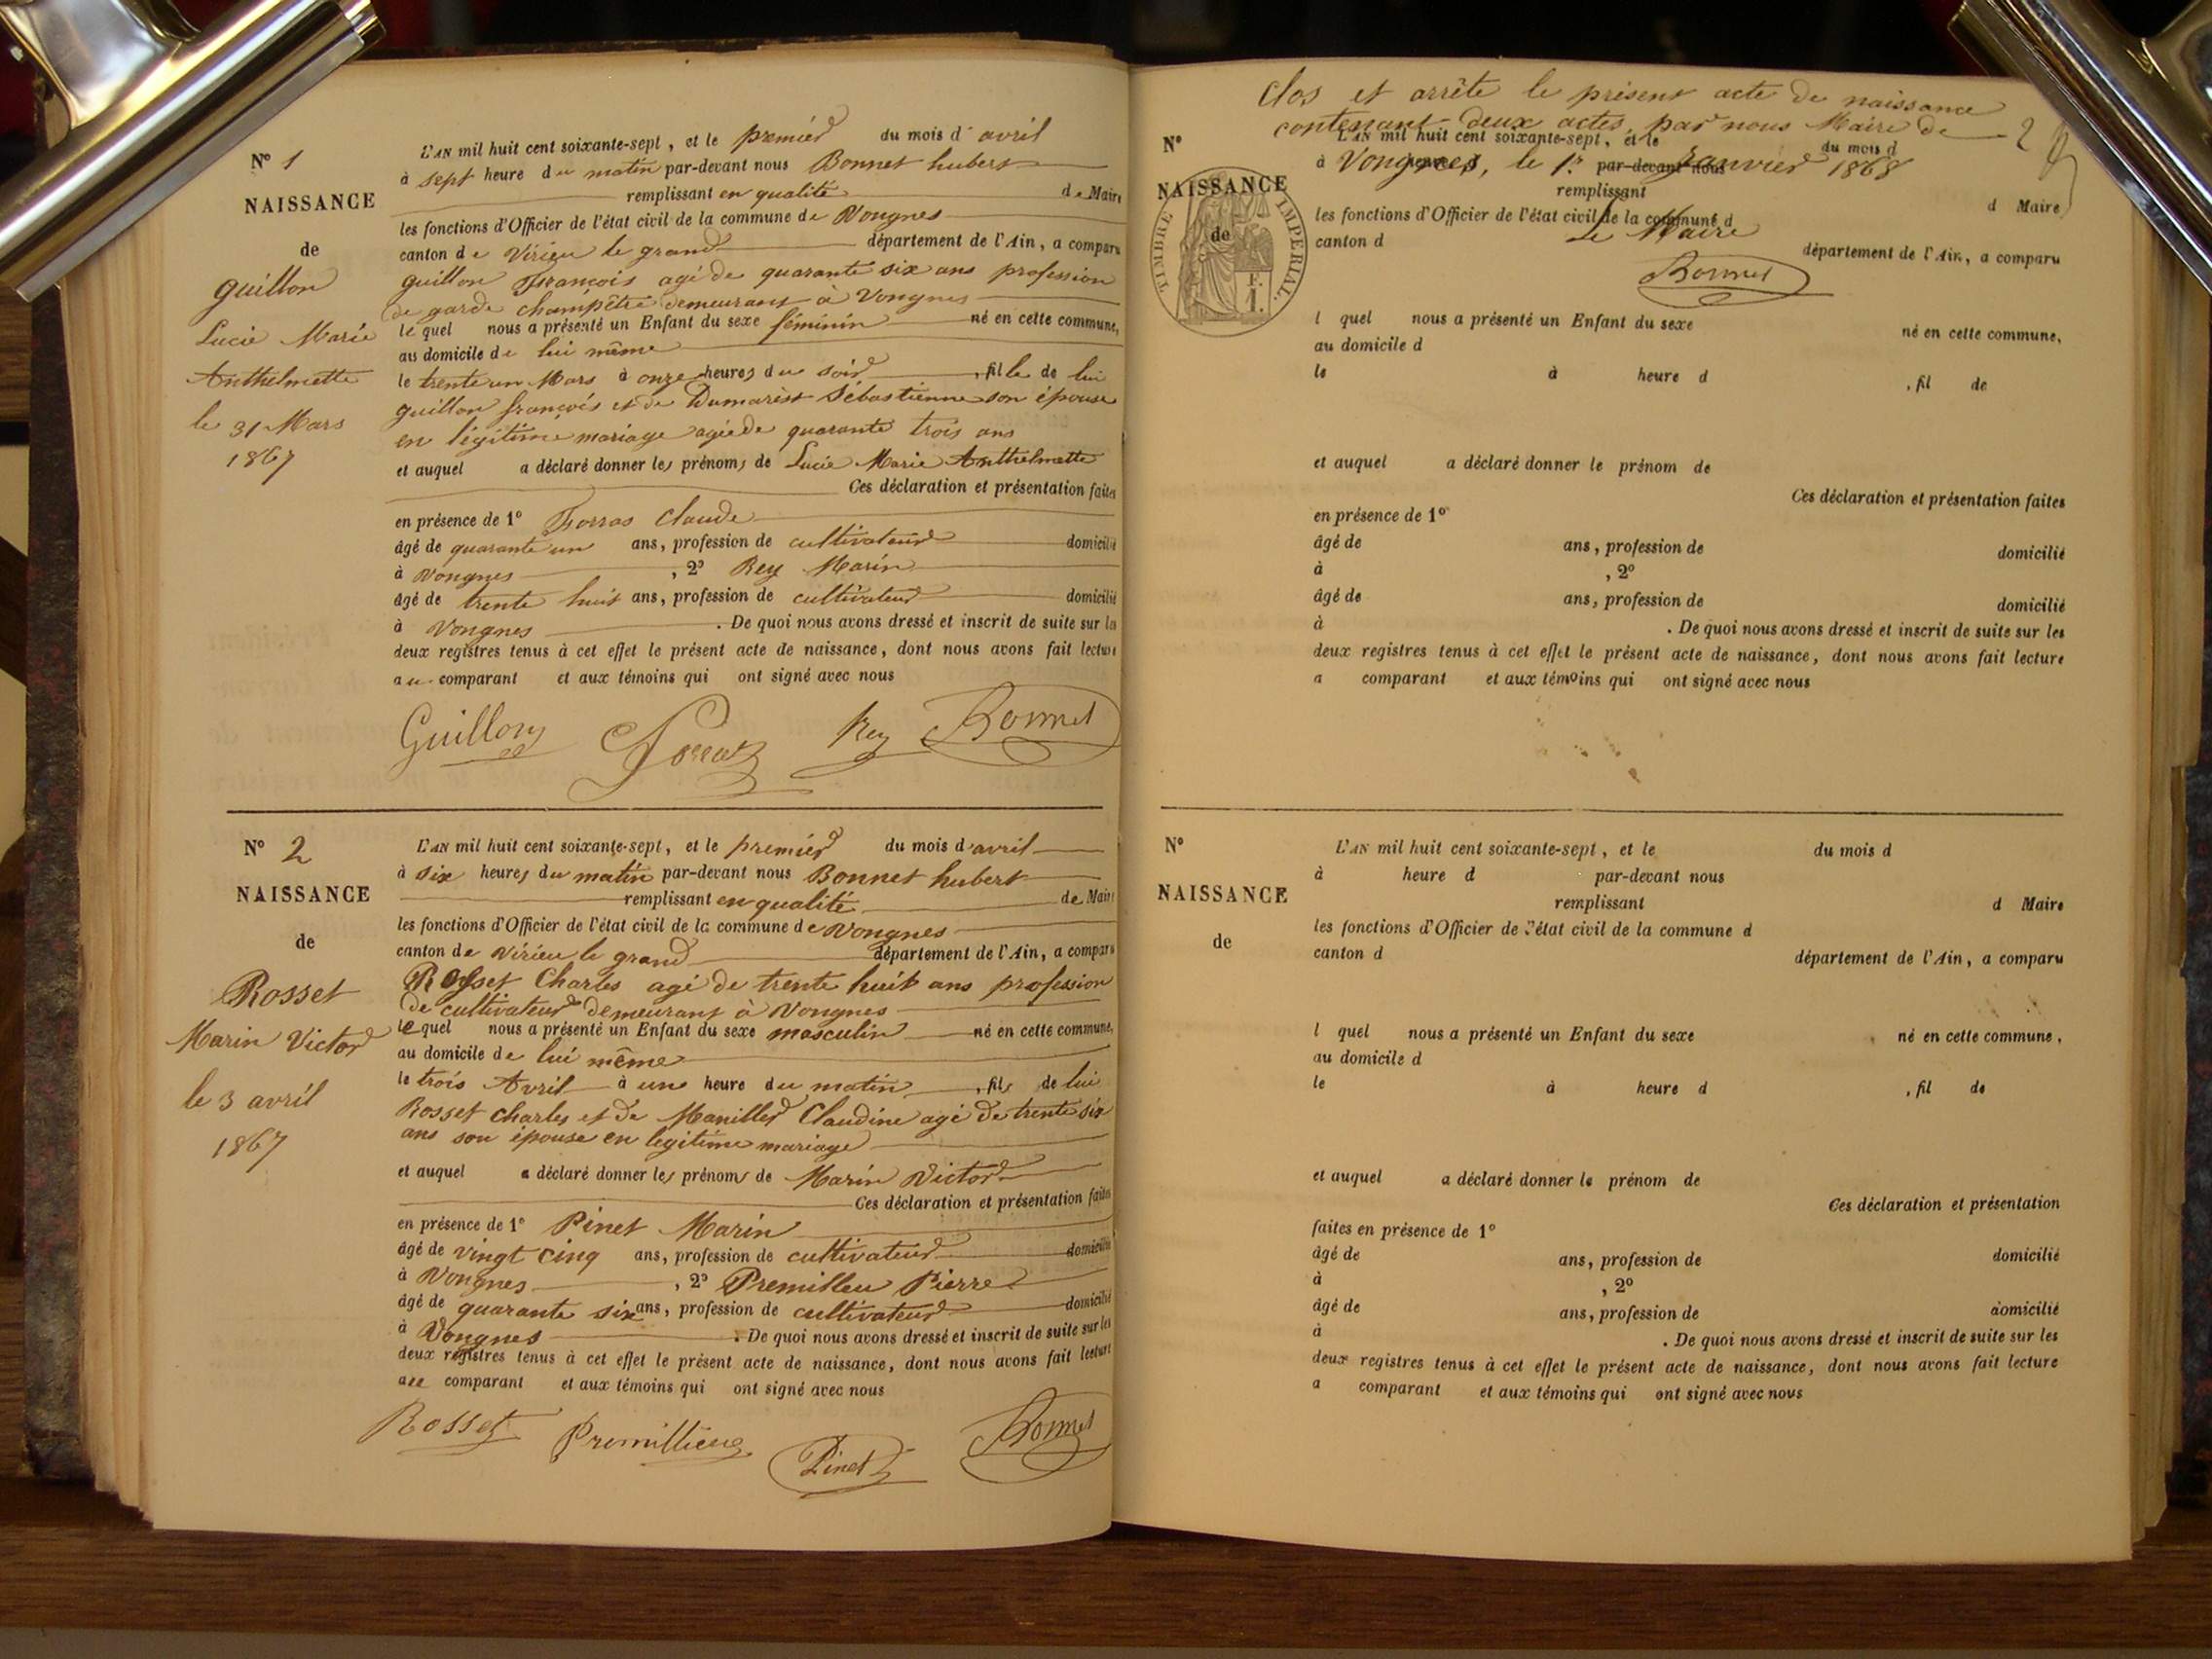 N° 1
NAISSANCE
de
guillon
Lucie Marie
Anthelmette
le 31 Mars
1867
L'AN mil huit cent soixante-sept, et le premier du mois d'avril
à sept heure du matin par-devant nous Bonnet hubert
remplissant en qualité de Maire
les fonctions d'Officier de l'état civil de la commune de Vongnes
canton de Virieu le grand département de l'Ain, a comparu
guillon François agé de quarante six ans profession
de garde champêtre demeurant à Vongnes
le quel nous a présenté un Enfant du sexe féminin né en cette commune,
au domicile de lui même
le trente un Mars à onze heures du soir, fille de lui
guillon françois et de Dumarest Sébastienne son épouse
en légitime mariage agée de quarante trois ans
et auquel a déclaré donner les prénoms de Lucie Marie Anthelmette
Ces déclaration et présentation faites
en présence de 1° Claude
âgé de quarante un ans, profession de cultivateur domicilié
à Vongnes, 2° Rey Marin
âgé de trente huit ans, profession de cultivateur domicilié
à Vongnes. De quoi nous avons dressé et inscrit de suite sur les
deux registres tenus à cet effet le présent acte de naissance, dont nous avons fait lecture
au comparant et aux témoins qui ont signé avec nous
Guillon Rey Bonnet
N° 2
NAISSANCE
de
Rosset
Marin Victor
le 3 avril
1867
L'AN mil huit cent soixante-sept, et le premier du mois d'avril
à six heures du matin par-devant nous Bonnet hubert
remplissant en qualité de Maire
les fonctions d'Officier de l'état civil de la commune de Vongnes
canton de Virieu le grand département de l'Ain, a comparu
Rosset Charles agé de trente huit ans profession
de cultivateur demeurant à Vongnes
le quel nous a présenté un Enfant du sexe masculin né en cette commune,
au domicile de lui même
le trois Avril à une heure du matin, fils de lui
Rosset charles et de Maniller Claudine agé de trente six
ans son épouse en legitime mariage
et auquel a déclaré donner les prénoms de Marin Victor
Ces déclaration et présentation faites
en présence de 1° Pinet Marin
âgé de vingt cinq ans, profession de cultivateur domicilié
à Vongnes, 2° Premilleu Pierre
âgé de quarante six ans, profession de cultivateur domicilié
à Vongnes. De quoi nous avons dressé et inscrit de suite sur les
deux registres tenus à cet effet le présent acte de naissance, dont nous avons fait lecture
au comparant et aux témoins qui ont signé avec nous
Rosset Premillieu Pinet Bonnet
Clos et arrêté le présent acte de naissance
contenant deux actes par nous Maire de
Vongnes, le 1er Janvier 1868
Le Maire
Bonnet
2
N°
NAISSANCE
de
TIMBRE IMPERIAL
F.
1.
L'AN mil huit cent soixante-sept, et le du mois d
à heure d par-devant nous
remplissant d Maire
les fonctions d'Officier de l'état civil de la commune d
canton d département de l'Ain, a comparu
l quel nous a présenté un Enfant du sexe né en cette commune,
au domicile d
le à heure d , fil de
et auquel a déclaré donner le prénom de
Ces déclaration et présentation faites
en présence de 1°
âgé de ans, profession de domicilié
à , 2°
âgé de ans, profession de domicilié
à . De quoi nous avons dressé et inscrit de suite sur les
deux registres tenus à cet effet le présent acte de naissance, dont nous avons fait lecture
a comparant et aux témoins qui ont signé avec nous
N°
NAISSANCE
de
L'AN mil huit cent soixante-sept, et le du mois d
à heure d par-devant nous
remplissant d Maire
les fonctions d'Officier de l'état civil de la commune d
canton d département de l'Ain, a comparu
l quel nous a présenté un Enfant du sexe né en cette commune,
au domicile d
le à heure d , fil de
et auquel a déclaré donner le prénom de
Ces déclaration et présentation
faites en présence de 1°
âgé de ans, profession de domicilié
à , 2°
âgé de ans, profession de domicilié
à . De quoi nous avons dressé et inscrit de suite sur les
deux registres tenus à cet effet le présent acte de naissance, dont nous avons fait lecture
a comparant et aux témoins qui ont signé avec nous